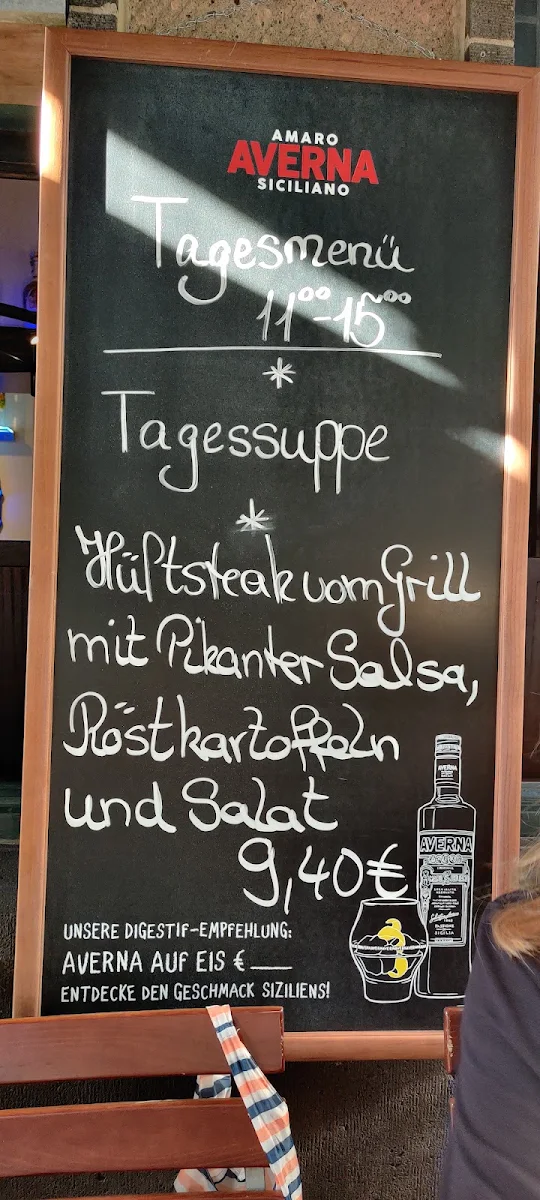 AMARO
AVERNA
SICILIANO
Tagesmenü
11⁰⁰-15⁰⁰
*
Tagessuppe
*
Hüftsteak vom Grill
mit Pikanter Salsa,
Röstkartoffeln
und Salat
9,40€
UNSERE DIGESTIF-EMPFEHLUNG:
AVERNA AUF EIS €
ENTDECKE DEN GESCHMACK SIZILIENS!
AVERNA
AVERNA
SICILIA